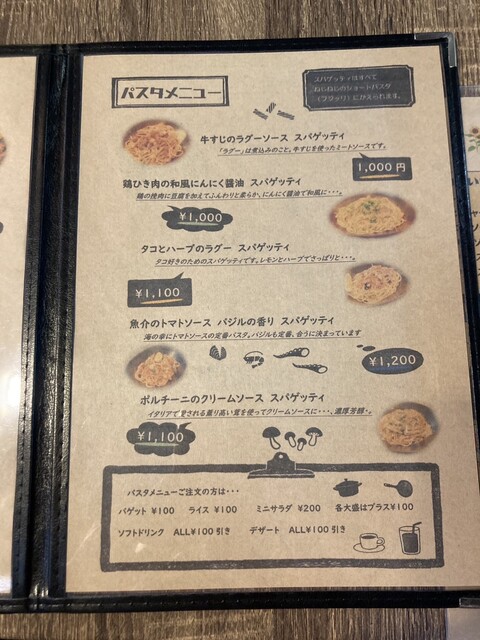 パスタメニュー
スパゲッティはすべて
ねじねじのショートパスタ
(フジッリ)にかえられます。
牛すじのラグーソース スパゲッティ
「ラグー」は煮込みのこと。牛すじを使ったミートソースです。
1,000円
鶏ひき肉の和風にんにく醤油 スパゲッティ
鶏の挽肉に豆腐を加えてふんわりと柔らか、にんにく醤油で和風に・・・。
¥1,000
タコとハーブのラグー スパゲッティ
タコ好きのためのスパゲッティです。レモンとハーブでさっぱりと・・・。
¥1,100
魚介のトマトソース バジルの香り スパゲッティ
海の幸にトマトソースの定番パスタ。バジルも定番、合うに決まっています
¥1,200
ポルチーニのクリームソース スパゲッティ
イタリアで愛される薫り高い茸を使ってクリームソースに・・・、濃厚芳醇・。
¥1,100
パスタメニューご注文の方は・・・
バゲット ¥100 ライス ¥100 ミニサラダ ¥200 各大盛はプラス¥100
ソフトドリンク ALL¥100引き デザート ALL¥100引き